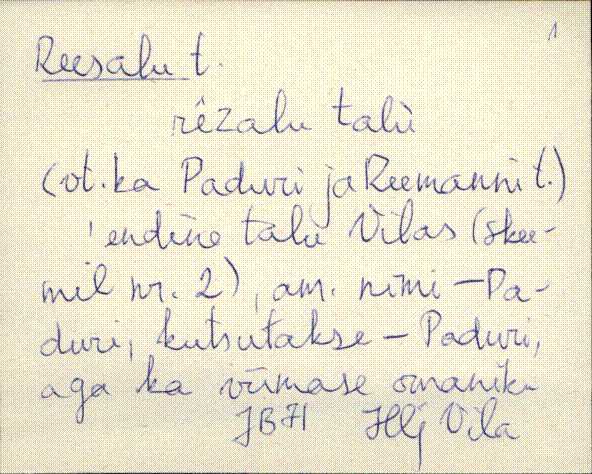 1
Reesalu t.
rēzalu talù
(vt. ka Paduri ja Reemanni t.)
'endine talu Vilas (skee-
mil nr. 2), am. nimi - Pa-
duri, kutsutakse - Paduri,
aga ka viimase omaniku
Hlj Vila